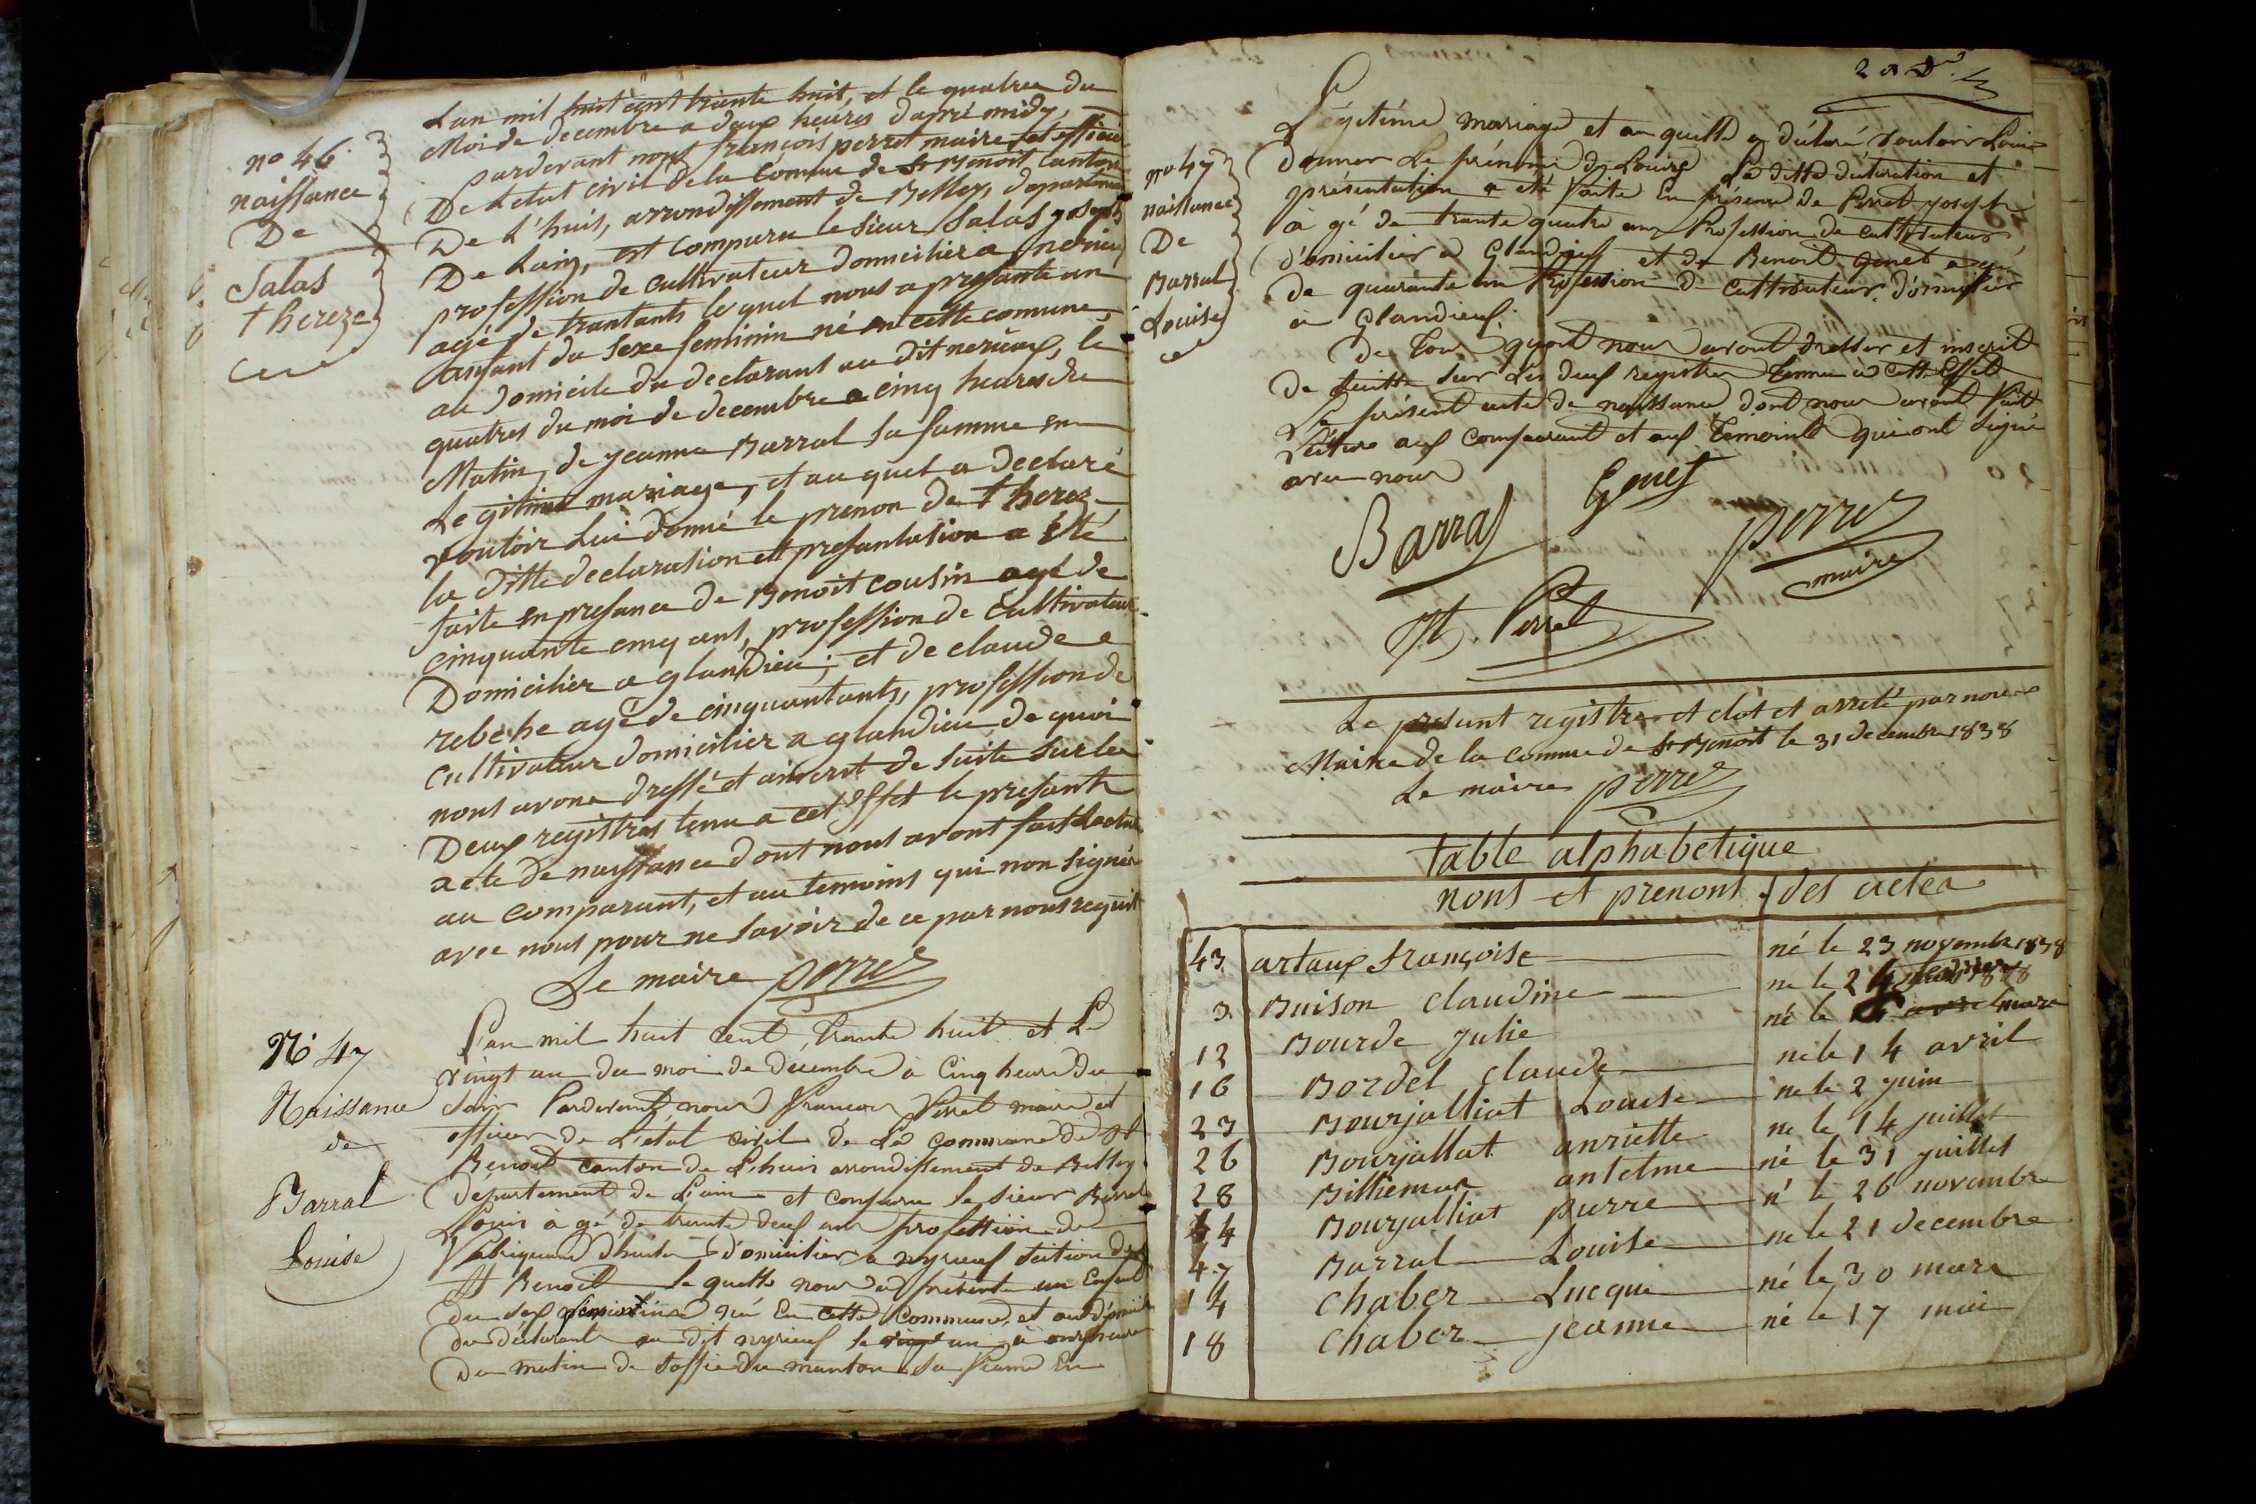 n° 46
naissance
De
Salas
thereze
Lan mil huit cent trante huit, et le quatres du
Moi de decembre a deux heures daprè midy,
pardevant nous françois perret maire et officier
De Letat civil de la Comune de St Benoit Canton
De L'huis, arrondissement de Belley, departement
De Lain, est comparu le sieur Salas joseph
profession de cultivateur domicilier a nerieu
agé de trantants lequel nous a presanté un
anfant du Sexe feminin né en cette comune,
au domicile du declarant au dit nerieux, le
quatres du moi de decembre a cinq heures du
Matin, de jeanne Barral sa famme en
Legitime mariage, et au quel a declaré
vouloir Lui donné le prenon de therez
la ditte declaration et presantation a été
faite en presance de Benoit cousin agé de
cinquante cinq ans, profession de cultivateur
Domicilier a glandieu; et de claude
rebehe agé de cinquantants, profession de
cultivateur domicilier a glandieu de quoi
nous avons dressé et ainscrit de suite sur les
Deux registres tenu a cet Effet le presante
acte de naissance dont nous avont fait Lecture
au comparant, et au temoins qui non signés
avec nous pour ne savoir de ce par nous requit
Le maire perret
N° 47
Naissance
de
Barral
Louise
L'an mil huit cent trante huit et Le
vingt un du moi de decembre à Cinq heure du
Soir Pardevant nous francois Perret maire et
officier de L'etat civil de La commune de St
Benoit canton de Lhuis arrondissement de Belley
departement de L'ain et comparu le sieur Barral
Louis à gé de trante deux ans profession de
fabriquant d'huile domicilier a nyrieux section de
St Benoit le quelle nous a présenté un Enfant
du sex feminine né En cette Commune, et au domicile
du déclarant au dit nyrieux le vingt un à onze heure
du matin de soffie du manton sa fame En
2 a
n° 47
naissance
De
Barral
Louise
Légitime mariage et au quelle a déclaré vouloir Louis
donner Le prénom de Louise La ditte déclaration et
présentation a eté faite En présence de Perret joseph
à gé de trante quatre ans Profession de cultivateur
d'omicilier a Glandieux et de Benoit Genet a gé
de quarante un Profession de cultivateur d'omicilier
a Glandieux.
De tous quoit nous avont dresser et inscrit
de suitte sur Les deux registre tenue à cette Effet
Le présent acte de naissance dont nous avont fait
Léture aux comparant et aux temoints qui ont signé
avec nous
Barral
Genet
perret
maire
St. Perret
Le presant registre et clôt et arreté par nous
Maire de la comune de St Benoit le 31 decembre 1838
Le maire perret
table alphabetique
nons et prenons des actes
43 artaux françoise né le 23 novembre 1838
3. Buison claudine ne le 24 1838
12 Bourde julie né le mars
16 Bordel claude né le 14 avril
23 Bourjalliat Louise ne le 2 juin
26 Bourjallat anriette ne le 14 juillet
28 Billiemaz antelme né le 31 juillet
44 Bourjalliat pierre n' le 26 novembre
47 Barral Louise ne le 21 decembre
14 Chaber Lucque né le 30 mars
18 Chaber jeanne né le 17 mai